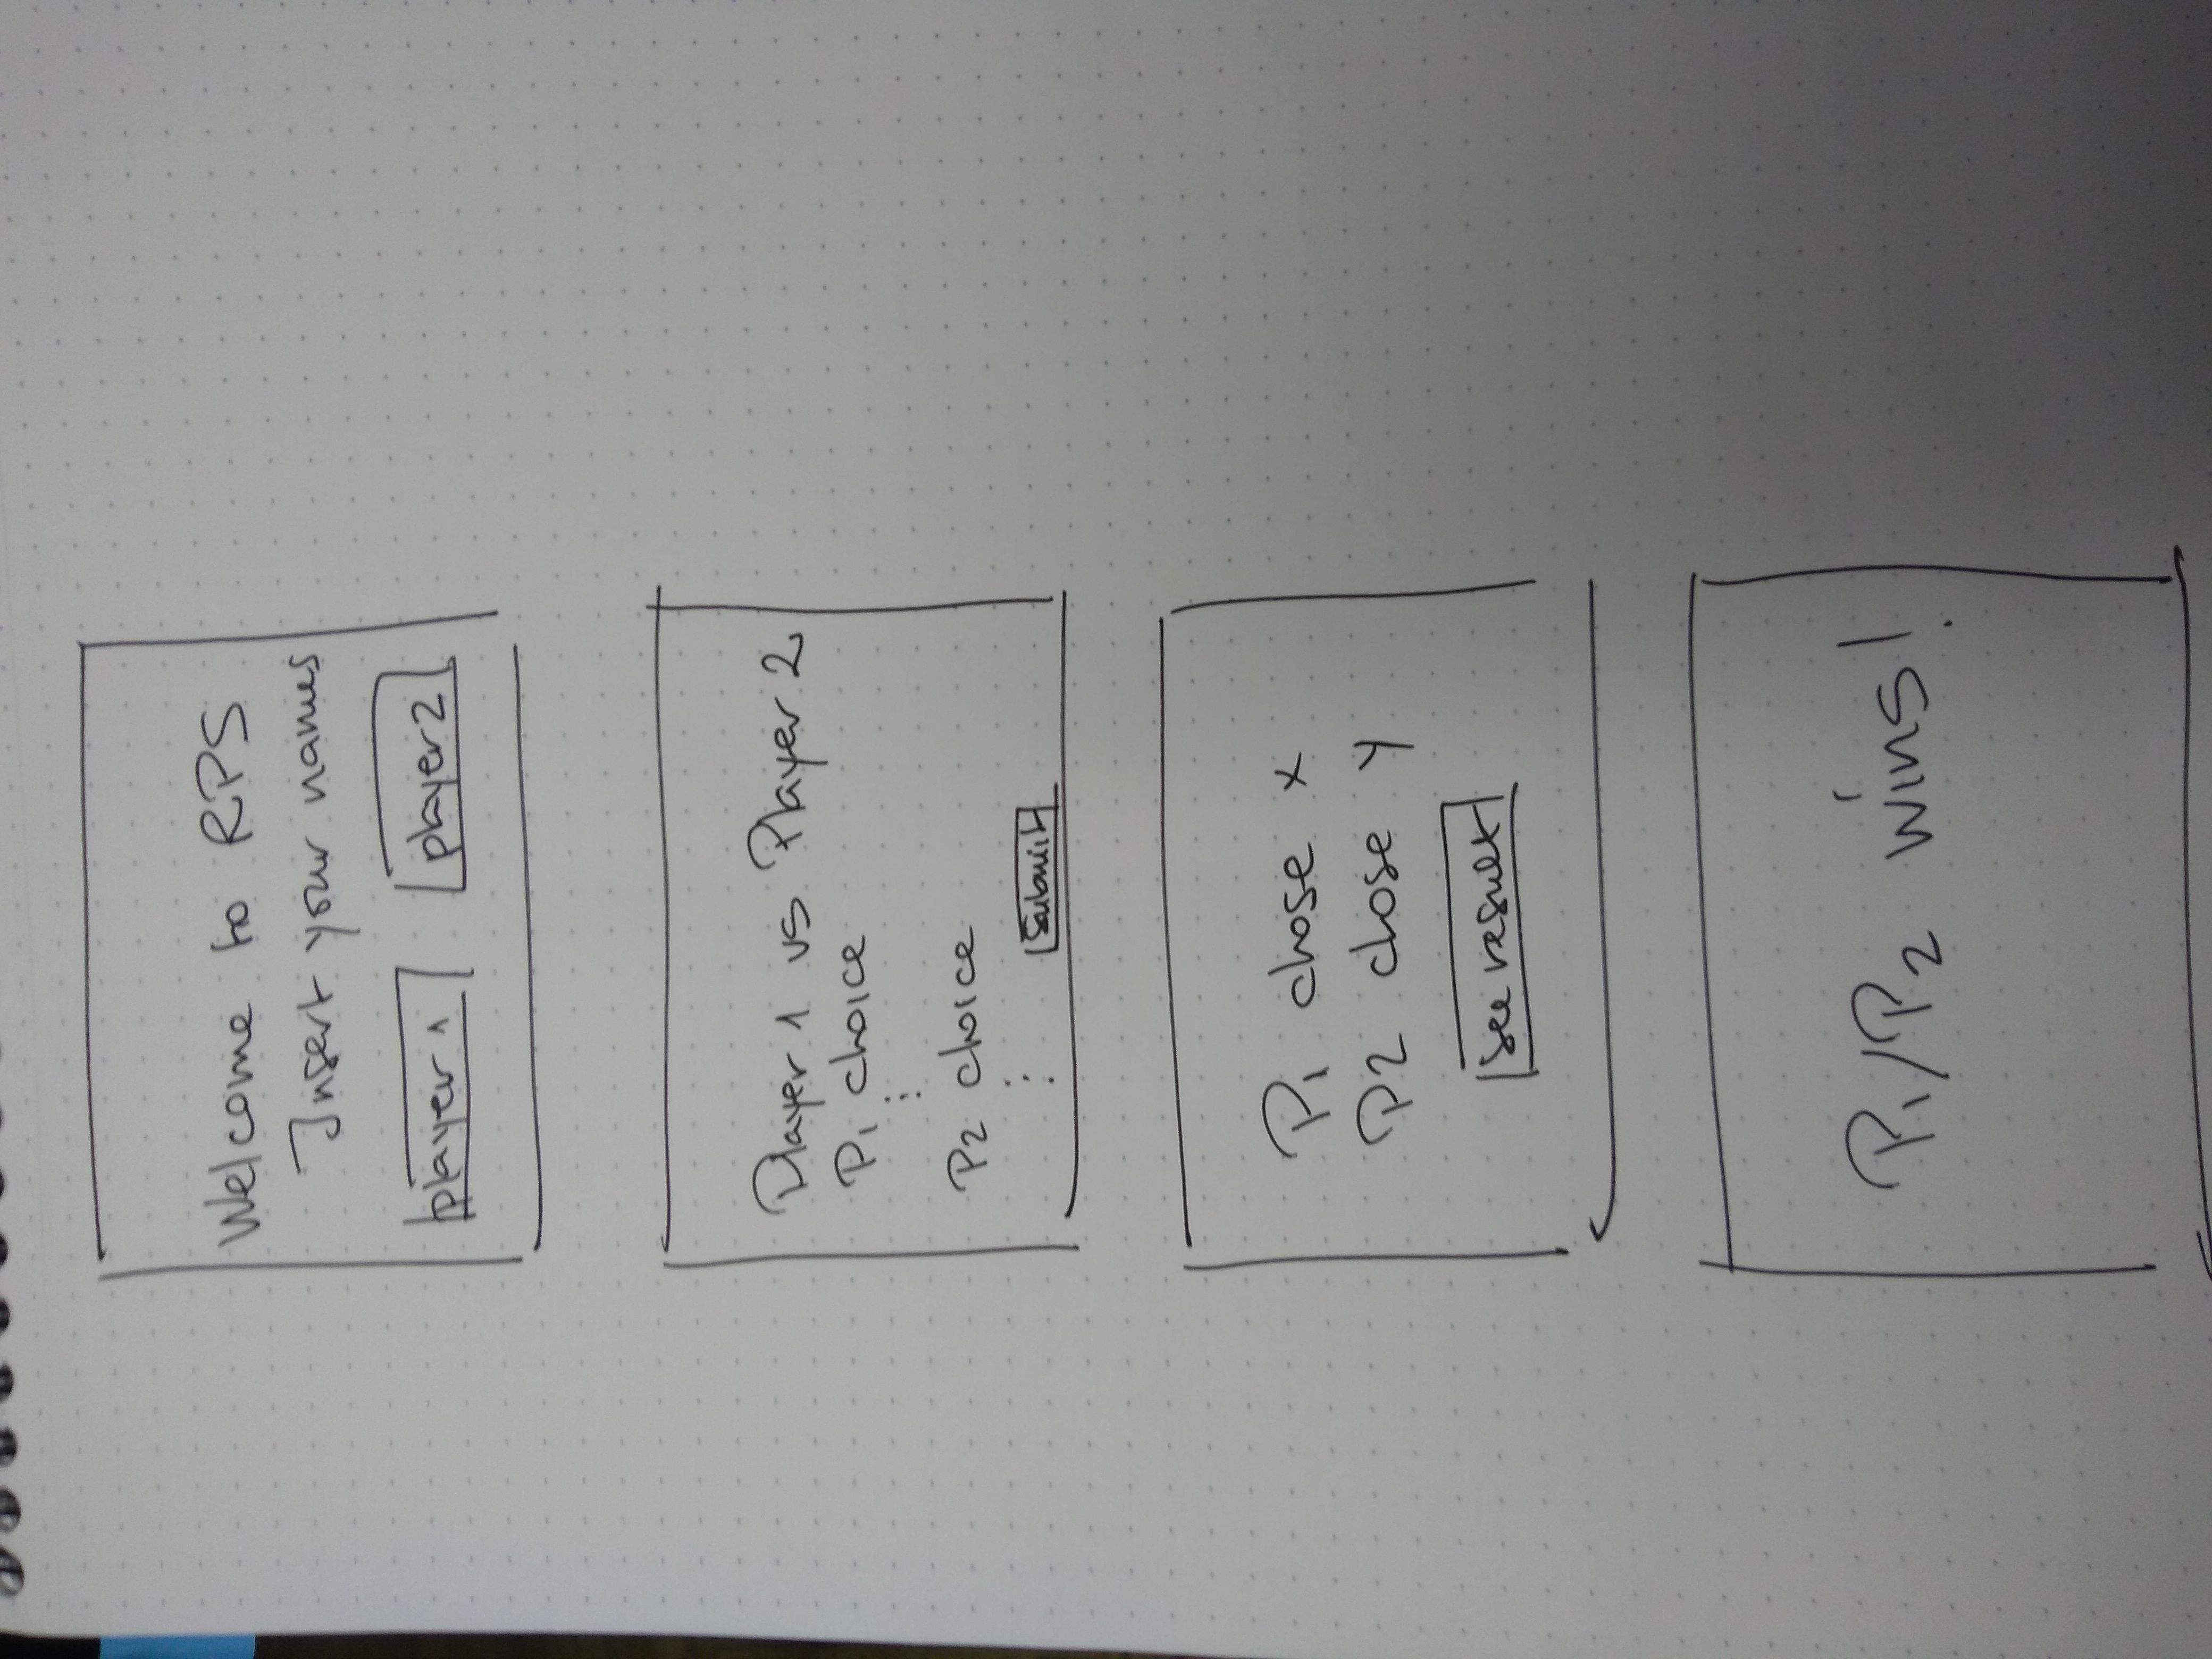 Welcome to RPS
Insert your names
player 1 player 2
Player 1 vs Player 2
P1 choice
⋮
P2 choice
⋮ Submit
P1 chose x
P2 chose y
see result
P1/P2 wins!